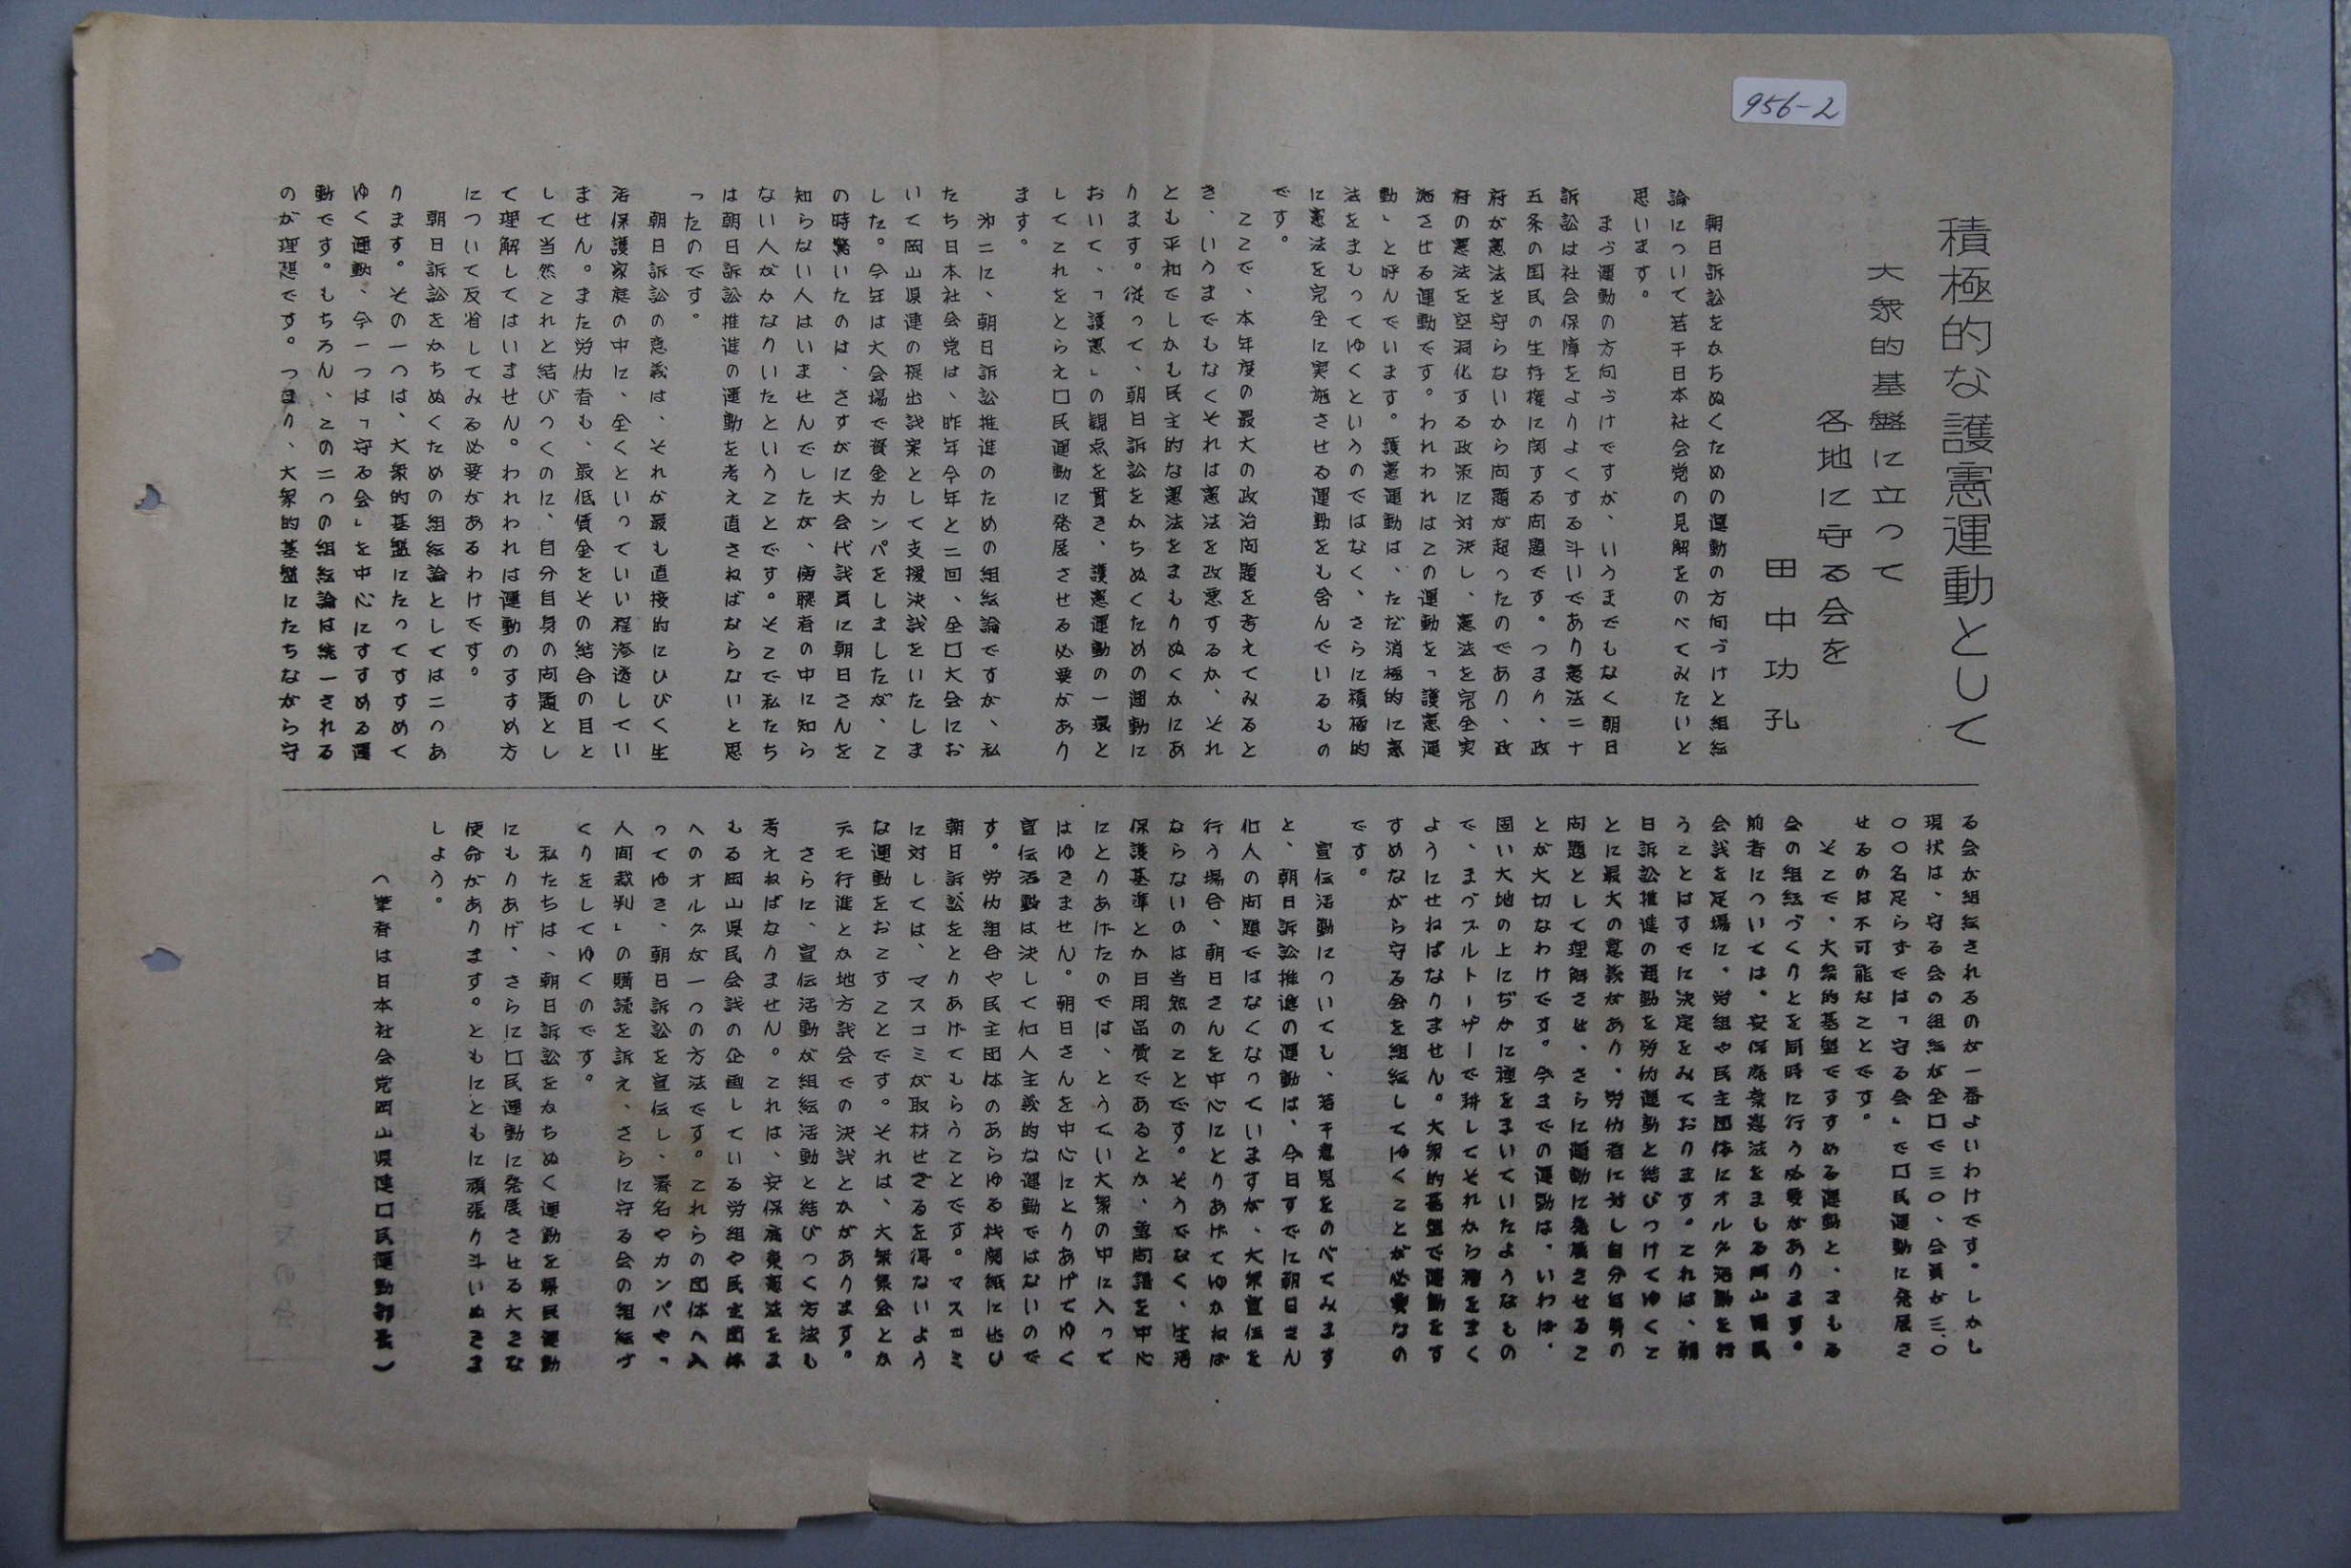 956-2
積極的な護憲運動として
大衆的基盤に立って
各地に守る会を
田中功孔
朝日訴訟をかちぬくための運動の方向づけと組織
論について若干日本社会党の見解をのべてみたいと
思います。
まづ運動の方向づけですが、いうまでもなく朝日
訴訟は社会保障をよりよくする斗いであり憲法二十
五条の国民の生存権に関する問題です。つまり、政
府が憲法を守らないから問題が起ったのであり、政
府の憲法を空洞化する政策に対決し、憲法を完全実
施させる運動です。われわれはこの運動を「護憲運
動」と呼んでいます。護憲運動は、ただ消極的に憲
法をまもってゆくというのではなく、さらに積極的
に憲法を完全に実施させる運動をも含んでいるもの
です。
ここで、本年度の最大の政治問題を考えてみると
き、いうまでもなくそれは憲法を改悪するか、それ
とも平和でしかも民主的な憲法をまもりぬくかにあ
ります。従って、朝日訴訟をかちぬくための運動に
おいて、「護憲」の観点を貫き、護憲運動の一環と
してこれをとらえ口民運動に発展させる必要があり
ます。
才二に、朝日訴訟推進のための組織論ですが、私
たち日本社会党は、昨年今年と二回、全口大会にお
いて岡山県連の提出議案として支援決議をいたしま
した。今年は大会場で資金カンパをしましたが、こ
の時驚いたのは、さすがに大会代議員に朝日さんを
知らない人はいませんでしたが、傍聴者の中に知ら
ない人がかなりいたということです。そこで私たち
は朝日訴訟推進の運動を考え直さねばならないと思
ったのです。
朝日訴訟の意義は、それが最も直接的にひびく生
活保護家庭の中に、全くといっていい程滲透してい
ません。また労仂者も、最低賃金をその結合の目と
して当然これと結びつくのに、自分自身の問題とし
て理解してはいません。われわれは運動のすすめ方
について反省してみる必要があるわけです。
朝日訴訟をかちぬくための組織論としては二つあ
ります。その一つは、大衆的基盤にたってすすめて
ゆく運動、今一つは「守る会」を中心にすすめる運
動です。もちろん、この二つの組織論は統一される
のが理想です。つまり、大衆的基盤にたちながら守
る会が組織されるのが一番よいわけです。しかし
現状は、守る会の組織が全口で三〇、会員が三、〇
〇〇名足らずでは「守る会」で口民運動に発展さ
せるのは不可能なことです。
そこで、大衆的基盤ですすめる運動と、まもる
会の組織づくりとを同時に行う必要があります。
前者については、安保廃棄憲法をまもる岡山県民
会議を足場に、労組や民主団体にオルグ活動を行
うことはすでに決定をみております。これは、朝
日訴訟推進の運動を労仂運動と結びつけてゆくこ
とに最大の意義があり、労仂者に対し自分自身の
問題として理解させ、さらに運動に発展させるこ
とが大切なわけです。今までの運動は、いわば、
固い大地の上にぢかに種をまいていたようなもの
で、まづブルトーザーで耕してそれから種をまく
ようにせねばなりません。大衆的基盤で運動をす
すめながら守る会を組織してゆくことが必要なの
です。
宣伝活動についても、若干意見をのべてみます
と、朝日訴訟推進の運動は、今日すでに朝日さん
個人の問題ではなくなっていますが、大衆宣伝を
行う場合、朝日さんを中心にとりあげてゆかねば
ならないのは当然のことです。そうでなく、生活
保護基準とか日用品費であるとか、重問題を中心
にとりあげたのでは、とうてい大衆の中に入って
はゆきません。朝日さんを中心にとりあげてゆく
宣伝活動は決して個人主義的な運動ではないので
す。労仂組合や民主団体のあらゆる機関紙にぜひ
朝日訴訟をとりあげてもらうことです。マスコミ
に対しては、マスコミが取材せざるを得ないよう
な運動をおこすことです。それは、大衆集会とか
デモ行進とか地方議会での決議とかがあります。
さらに、宣伝活動が組織活動と結びつく方法も
考えねばなりません。これは、安保廃棄憲法をま
もる岡山県民会議の企画している労組や民主団体
へのオルグが一つの方法です。これらの団体へ入
ってゆき、朝日訴訟を宣伝し、署名やカンパや、
人間裁判」の購読を訴え、さらに守る会の組織づ
くりをしてゆくのです。
私たちは、朝日訴訟をかちぬく運動を県民運動
にもりあげ、さらに口民運動に発展させる大きな
使命があります。ともにともに頑張り斗いぬきま
しよう。
(筆者は日本社会党岡山県連口民運動部長)